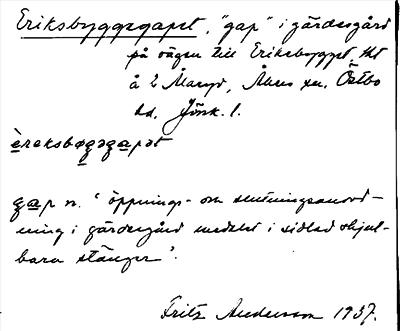 Eriksbyggegapet, "gap" i gärdesgård
på vägen till Eriksbygget, tht
å 2 Åaryd, Åkers sn. Östbo
hd. Jönk. l.
èreksbøgəgapət
gap n. 'öppnings- och stutningsanord-
ning i gärdesgård medelst i sidled skjut-
bara stänger'.
Fritz Anderson 1937.